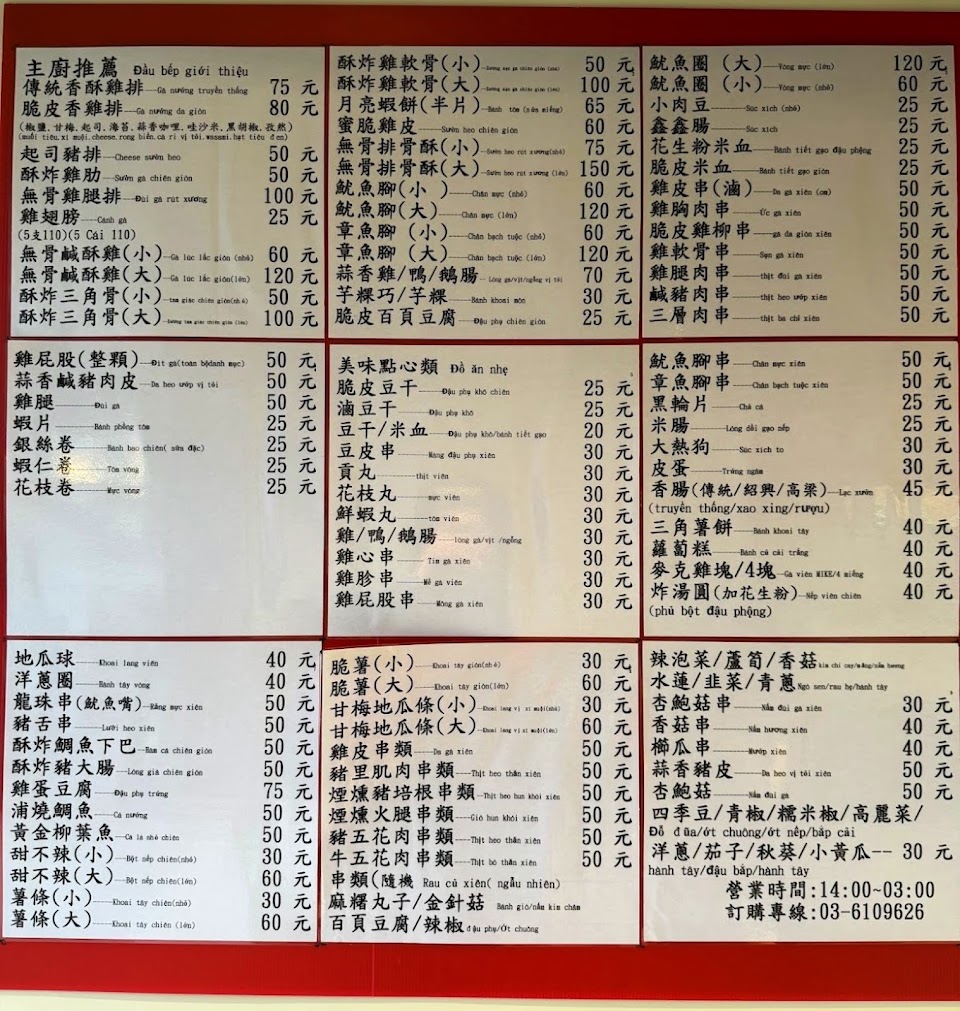 主廚推薦 Đầu bếp giới thiệu
傳統香酥雞排---Gà nướng truyền thống 75 元
脆皮香雞排---Gà nướng da giòn 80 元
(椒鹽,甘梅,起司,海苔,蒜香咖哩,哇沙米,黑胡椒,孜然)
(muối tiêu,xí muội,cheese,rong biển,cà ri vị tỏi,wasami,hạt tiêu đen)
起司豬排---Cheese sườn heo 50 元
酥炸雞肋---Sườn gà chiên giòn 50 元
無骨雞腿排---Đùi gà rút xương 100 元
雞翅膀---Cánh gà 25 元
(5支110)(5 Cái 110)
無骨鹹酥雞(小)---Gà lúc lắc giòn (nhỏ) 60 元
無骨鹹酥雞(大)---Gà lúc lắc giòn(lớn) 120 元
酥炸三角骨(小)---tam giác chiên giòn(nhỏ) 50 元
酥炸三角骨(大)---Sương tam giác chiên giòn (lớn) 100 元
酥炸雞軟骨(小) 50 元
酥炸雞軟骨(大) 100 元
月亮蝦餅(半片)---Bánh tôm (nửa miếng) 65 元
蜜脆雞皮---Sườn heo chiên giòn 60 元
無骨排骨酥(小)---Sườn heo rút xương(nhỏ) 75 元
無骨排骨酥(大)---Sườn heo rút xương (lớn) 150 元
魷魚腳(小 )---Chân mực (nhỏ) 60 元
魷魚腳(大)---Chân mực (lớn) 120 元
章魚腳 (小)---Chân bạch tuộc (nhỏ) 60 元
章魚腳 (大)---Chân bạch tuộc (lớn) 120 元
蒜香雞/鴨/鵝腸---Lòng gà/vịt/ngỗng vị tỏi 70 元
芋粿巧/芋粿---Bánh khoai môn 30 元
脆皮百頁豆腐---Đậu phụ chiên giòn 25 元
魷魚圈 (大)---Vòng mực (lớn) 120 元
魷魚圈 (小)---Vòng mực (nhỏ) 60 元
小肉豆---Súc xích (nhỏ) 25 元
鑫鑫腸---Súc xích 25 元
花生粉米血---Bánh tiết gạo đậu phộng 25 元
脆皮米血---Bánh tiết gạo giòn 25 元
雞皮串(滷)---Da gà xiên (om) 50 元
雞胸肉串---Ức gà xiên 50 元
脆皮雞柳串---gà da giòn xiên 50 元
雞軟骨串---Sụn gà xiên 50 元
雞腿肉串---thịt đùi gà xiên 50 元
鹹豬肉串---thịt heo ướp xiên 50 元
三層肉串---thịt ba chỉ xiên 50 元
雞屁股(整顆)---Đít gà(toàn bộdanh mục) 50 元
蒜香鹹豬肉皮---Da heo ướp vị tỏi 50 元
雞腿---Đùi gà 50 元
蝦片---Bánh phồng tôm 25 元
銀絲卷---Bánh bao chiên( sữa đặc) 25 元
蝦仁卷---Tôm vòng 25 元
花枝卷---Mực vòng 25 元
美味點心類 Đồ ăn nhẹ
脆皮豆干---Đậu phụ khô chiên 25 元
滷豆干---Đậu phụ khô 25 元
豆干/米血---Đậu phụ khô/bánh tiết gạo 20 元
豆皮串---Màng đậu phụ xiên 30 元
貢丸---thịt viên 30 元
花枝丸---mực viên 30 元
鮮蝦丸---tôm viên 30 元
雞/鴨/鵝腸---lòng gà/vịt /ngỗng 30 元
雞心串---Tim gà xiên 30 元
雞胗串---Mề gà viên 30 元
雞屁股串---Mông gà xiên 30 元
魷魚腳串---Chân mực xiên 50 元
章魚腳串---Chân bạch tuộc xiên 50 元
黑輪片---Chả cá 25 元
米腸---Lòng dồi gạo nếp 25 元
大熱狗---Súc xích to 30 元
皮蛋---Trứng ngâm 30 元
香腸(傳統/紹興/高梁)---Lạc xườn 45 元
(truyền thống/xao xing/rượu)
三角薯餅---Bánh khoai tây 40 元
蘿蔔糕---Bánh củ cải trắng 40 元
麥克雞塊/4塊---Gà viên MIKE/4 miếng 40 元
炸湯圓(加花生粉)---Nếp viên chiên 40 元
(phủ bột đậu phộng)
地瓜球---Khoai lang viên 40 元
洋蔥圈---Hành tây vòng 40 元
龍珠串(魷魚嘴)---Răng mực xiên 50 元
豬舌串---Lưỡi heo xiên 50 元
酥炸鯛魚下巴---Hàm cá chiên giòn 50 元
酥炸豬大腸---Lòng già chiên giòn 50 元
雞蛋豆腐---Đậu phụ trứng 75 元
浦燒鯛魚---Cá nướng 50 元
黃金柳葉魚---Cá lá nhỏ chiên 50 元
甜不辣(小)---Bột nếp chiên(nhỏ) 30 元
甜不辣(大)---Bột nếp chiên(lớn) 60 元
薯條(小)---Khoai tây chiên(nhỏ) 30 元
薯條(大)---Khoai tây chiên (lớn) 60 元
脆薯(小)---Khoai tây giòn(nhỏ) 30 元
脆薯(大)---Khoai tây giòn(lớn) 60 元
甘梅地瓜條(小)---Khoai lang vị xí muội(nhỏ) 30 元
甘梅地瓜條(大)---Khoai lang vị xí muội(lớn) 60 元
雞皮串類---Da gà xiên 50 元
豬里肌肉串類---Thịt heo thăn xiên 50 元
煙燻豬培根串類---Thịt heo hun khói xiên 50 元
煙燻火腿串類---Giò hun khói xiên 50 元
豬五花肉串類---Thịt heo thăn xiên 50 元
牛五花肉串類---Thịt bò thăn xiên 50 元
串類(隨機 Rau củ xiên( ngẫu nhiên)
麻糬丸子/金針菇 Bánh giò/nấm kim châm
百頁豆腐/辣椒 đậu phụ/Ớt chuông
辣泡菜/蘆筍/香菇 kim chi cay/măng/nấm hương
水蓮/韭菜/青蔥 Ngó sen/rau hẹ/hành tây
杏鮑菇串---Nấm đùi gà xiên 30 元
香菇串---Nấm hương xiên 40 元
櫛瓜串---Mướp xiên 40 元
蒜香豬皮---Da heo vị tỏi xiên 50 元
杏鮑菇---Nấm đùi gà 50 元
四季豆/青椒/糯米椒/高麗菜/
Đỗ đũa/ớt chuông/ớt nếp/bắp cải
洋蔥/茄子/秋葵/小黃瓜-- 30 元
hành tây/đậu bắp/hành tây
營業時間:14:00~03:00
訂購專線:03-6109626